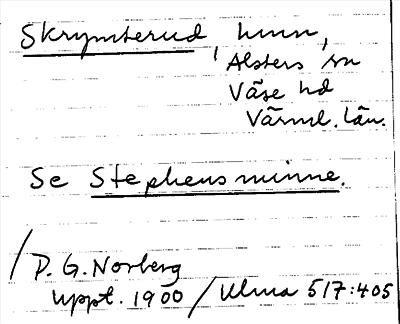 Skrymterud, hmn,
Alsters sn
Väse hd
Värml. län.
Se Stephensminne.
/D. G. Norberg
uppt. 1900 / Ulma 517:405